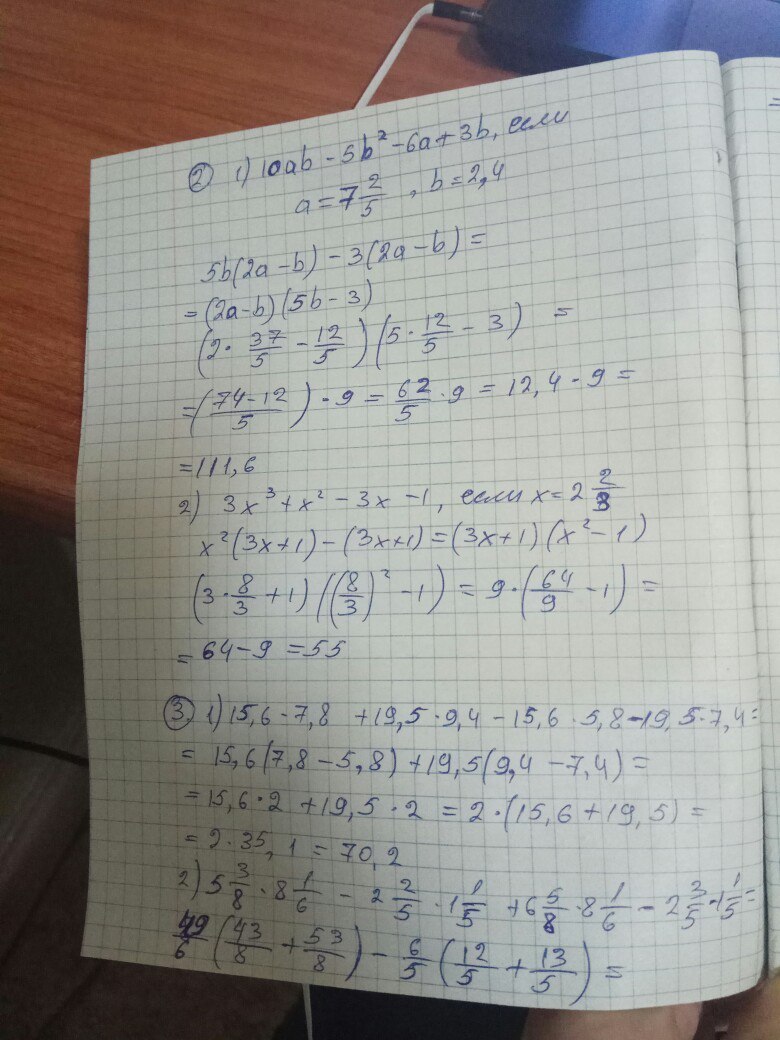 ② 1) 10ab - 5b² - 6a + 3b, если
a = 7 2/5 , b = 2,4
5b(2a - b) - 3(2a - b) =
= (2a - b)(5b - 3)
(2 · 37/5 - 12/5)(5 · 12/5 - 3) =
= (74 - 12/5) · 9 = 62/5 · 9 = 12,4 · 9 =
= 111,6
2) 3x³ + x² - 3x - 1, если x = 2 2/3
x²(3x + 1) - (3x + 1) = (3x + 1)(x² - 1)
(3 · 8/3 + 1)((8/3)² - 1) = 9 · (64/9 - 1) =
= 64 - 9 = 55
③ 1) 15,6 · 7,8 + 19,5 · 9,4 - 15,6 · 5,8 - 19,5 · 7,4 =
= 15,6(7,8 - 5,8) + 19,5(9,4 - 7,4) =
= 15,6 · 2 + 19,5 · 2 = 2 · (15,6 + 19,5) =
= 2 · 35,1 = 70,2
2) 5 3/8 · 8 1/6 - 2 2/5 · 1 1/5 + 6 5/8 · 8 1/6 - 2 3/5 · 1 1/5 =
49/6 (43/8 + 53/8) - 6/5 (12/5 + 13/5) =
=